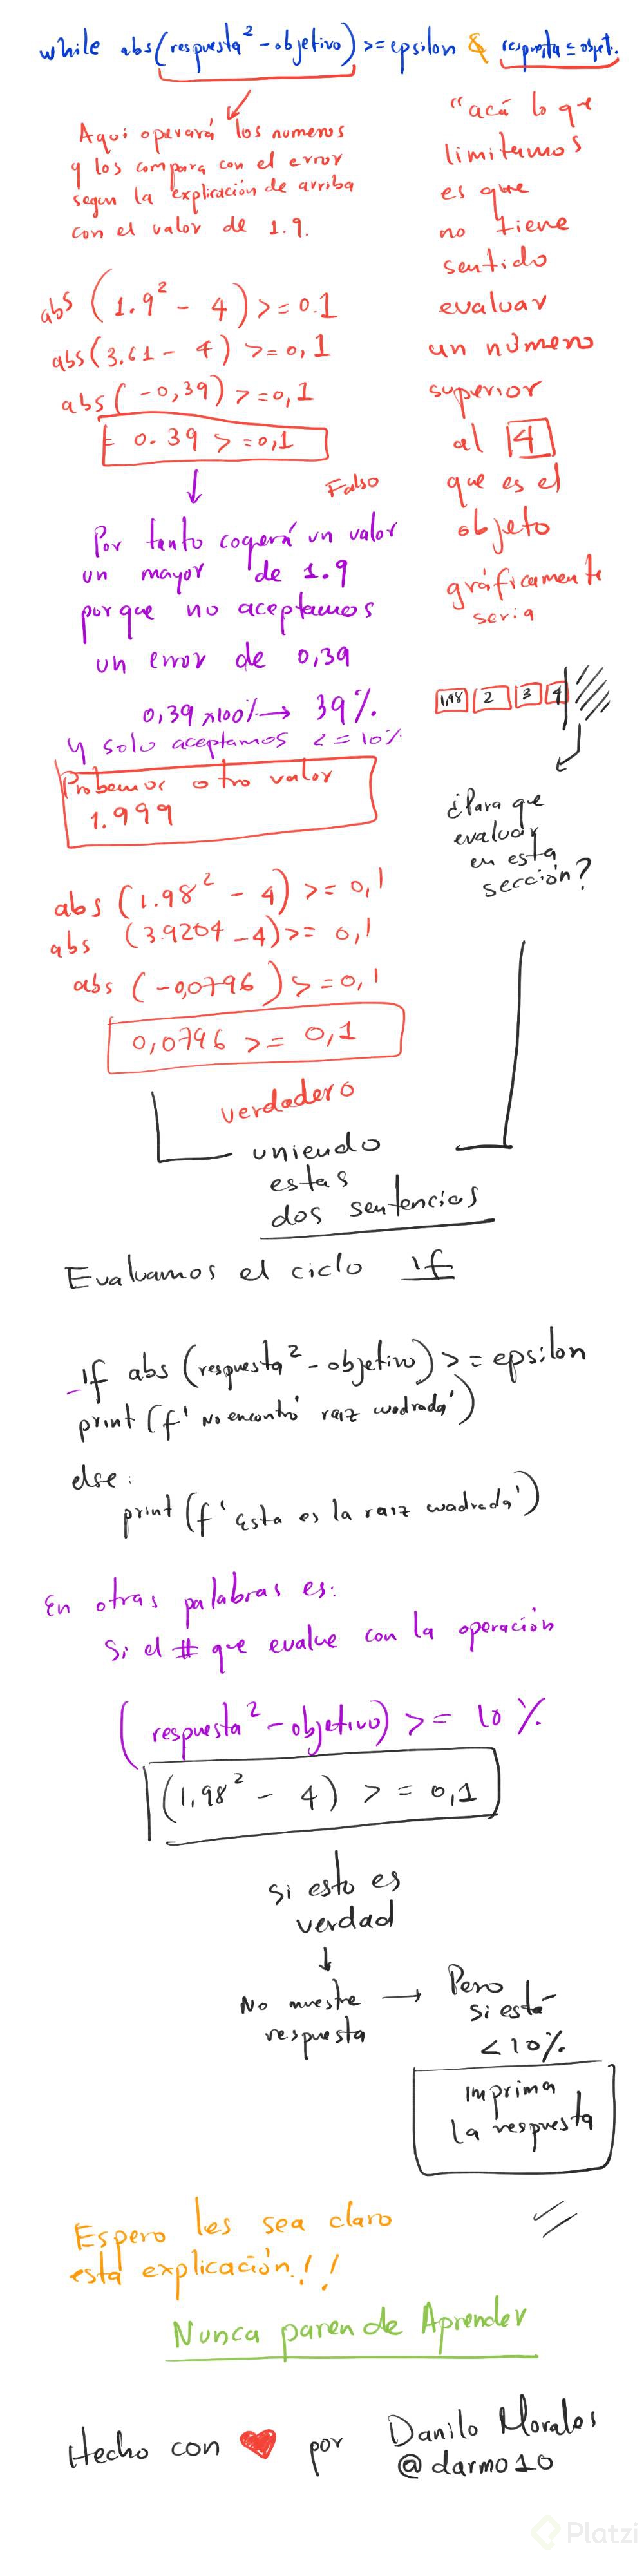 while abs(respuesta² - objetivo) >= epsilon & respuesta ≤ objet.
Aqui operará los numeros
y los compara con el error
segun la explicación de arriba
con el valor de 1.9.
abs (1.9² - 4) >= 0.1
abs(3.61 - 4) >= 0,1
abs(-0,39) >= 0,1
= 0.39 >= 0,1
Falso
Por tanto cogerá un valor
un mayor de 1.9
porque no aceptamos
un error de 0,39
0,39 x100% → 39%.
Y solo aceptamos <= 10%
Probemos otro valor
1.999
abs (1.98² - 4) >= 0,1
abs (3.9204 - 4) >= 0,1
abs (-0,0796) >= 0,1
0,0796 >= 0,1
verdadero
"acá lo que
limitamos
es que
no tiene
sentido
evaluar
un número
superior
al 4
que es el
objeto
gráficamente
seria
1,98 2 3 4
¿Para que
evaluar
en esta
sección?
uniendo
estas
dos sentencias
Evaluamos el ciclo if
If abs (respuesta² - objetivo) >= epsilon
print (f' No encontró raiz cuadrada')
else:
print (f' Esta es la raiz cuadrada')
En otras palabras es:
Si el # que evalue con la operación
(respuesta² - objetivo) >= 10%
(1,98² - 4) >= 0,1
si esto es
verdad
↓
No muestre →
respuesta
Pero
si está
<10%
imprima
la respuesta
Espero les sea claro
esta explicación!!
Nunca paren de Aprender
Hecho con ❤ por Danilo Morales
@darmo10
Platzi